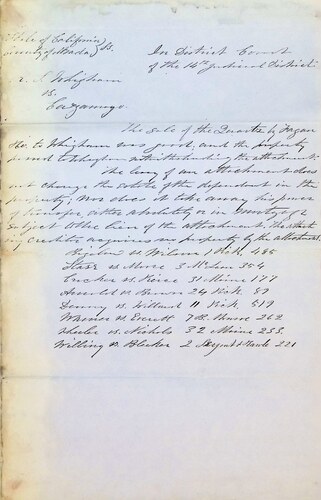 State of California
County of Nevada } ss.
In District Court
of the 14th Judicial District
Whigham
vs.
The sale of the Quartz by Fagan
to Whigham was good, and the property
passed to Whigham notwithstanding the attachment.
The levy of an attachment does
not change the estate of the defendant in the
property; Nor does it take away his power
of transfer either absolutely or in
subject to the lien of the attachment,
creditor acquires no property by the attachment.
Bigelow vs Wilson 1 Pick. 485
Starr vs Moore 3 McLean 354
Crocker vs Pierce 31 Maine 177
Arnold vs Brown 24 Pick 89
Denny vs Willard 11 Pick 519
Warner vs Everett 7 B. Monroe 262
Wheeler vs. Nichols 32 Maine 233
Willing vs Bleeker 2 Sergeant & Rawle 221